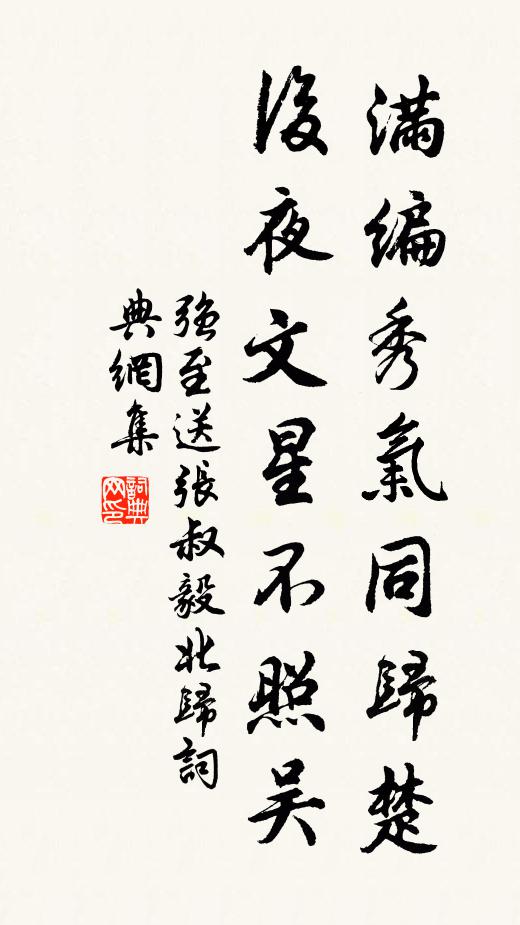 滿編秀氣同歸楚
後夜文星不照吴
強至送張叔毅北歸詞
典網集
詞典
网印